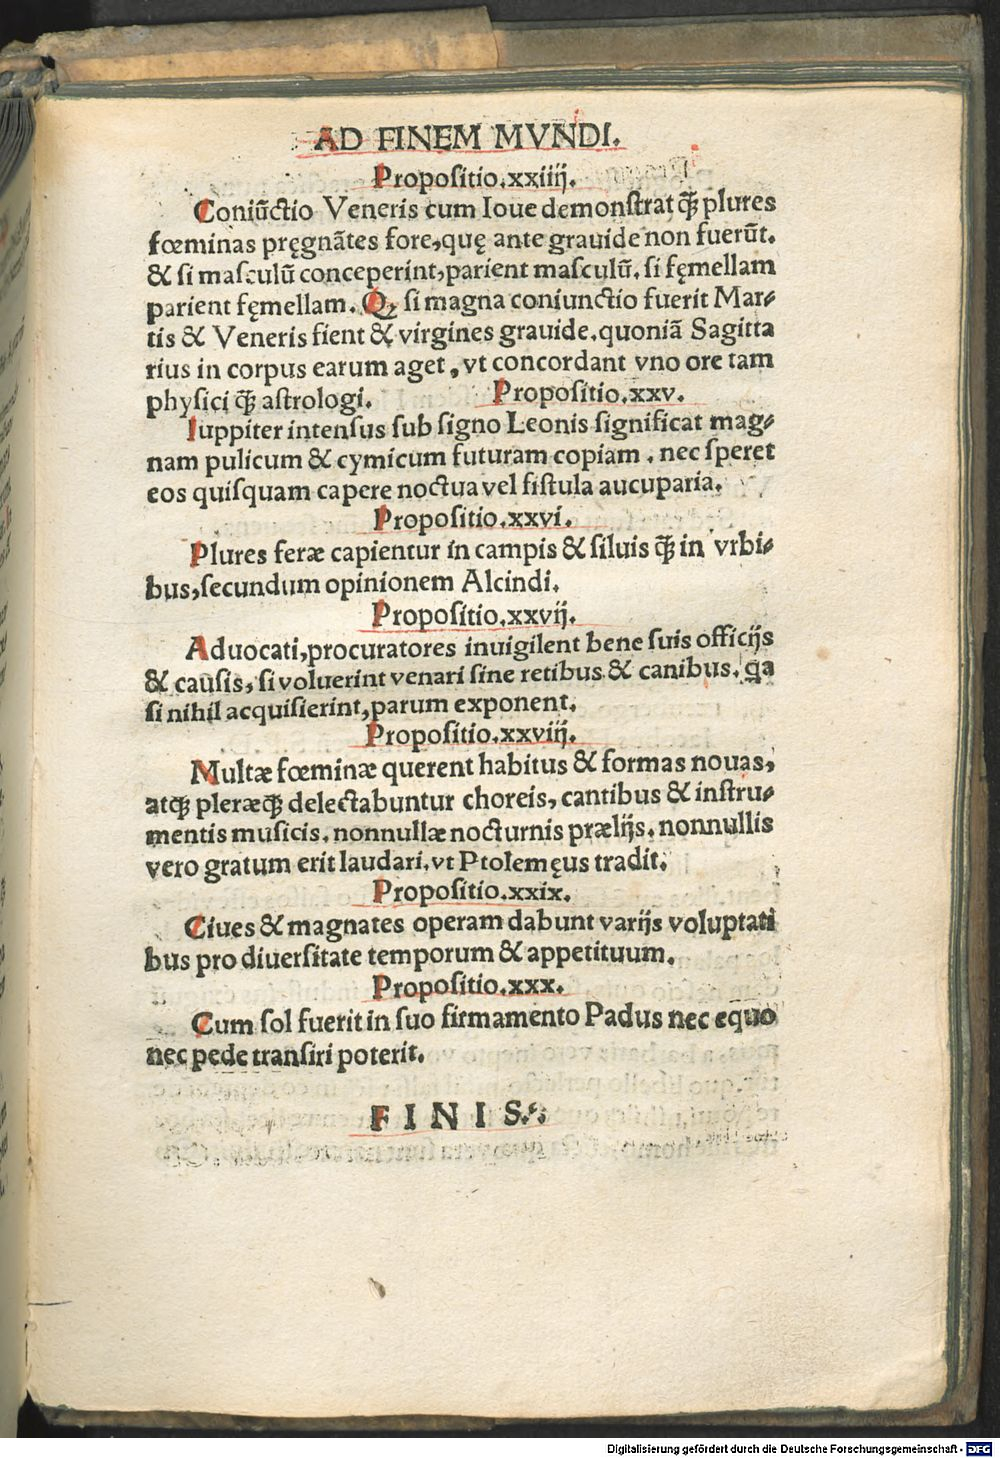 AD FINEM MVNDI.
Propositio.xxiiij.
Coniũctio Veneris cum Ioue demonstrat ꝙ̃ plures
fœminas pręgnãtes fore, quę ante grauide non fuerũt.
& si masculũ conceperint, parient masculũ. si fęmellam
parient fęmellam. Qꝫ si magna coniunctio fuerit Mar⸗
tis & Veneris fient & virgines grauide. quoniã Sagitta
rius in corpus earum aget, vt concordant vno ore tam
physici ꝙ̃ astrologi. Propositio.xxv.
Iuppiter intensus sub signo Leonis significat mag⸗
nam pulicum & cymicum futuram copiam. nec speret
eos quisquam capere noctua vel fistula aucuparia.
Propositio.xxvi.
Plures feræ capientur in campis & siluis ꝙ̃ in vrbi⸗
bus, secundum opinionem Alcindi.
Propositio.xxvij.
Aduocati, procuratores inuigilent bene suis officijs
& causis, si voluerint venari sine retibus & canibus. qa
si nihil acquisierint, parum exponent.
Propositio.xxviij.
Multæ fœminæ querent habitus & formas nouas,
atqꝫ pleræqꝫ delectabuntur choreis, cantibus & instru⸗
mentis musicis. nonnullæ nocturnis prælijs. nonnullis
vero gratum erit laudari. vt Ptolemęus tradit.
Propositio.xxix.
Ciues & magnates operam dabunt varijs voluptati
bus pro diuersitate temporum & appetituum.
Propositio.xxx.
Cum sol fuerit in suo firmamento Padus nec equo
nec pede transiri poterit.
FINIS.
Digitalisierung gefördert durch die Deutsche Forschungsgemeinschaft - DFG